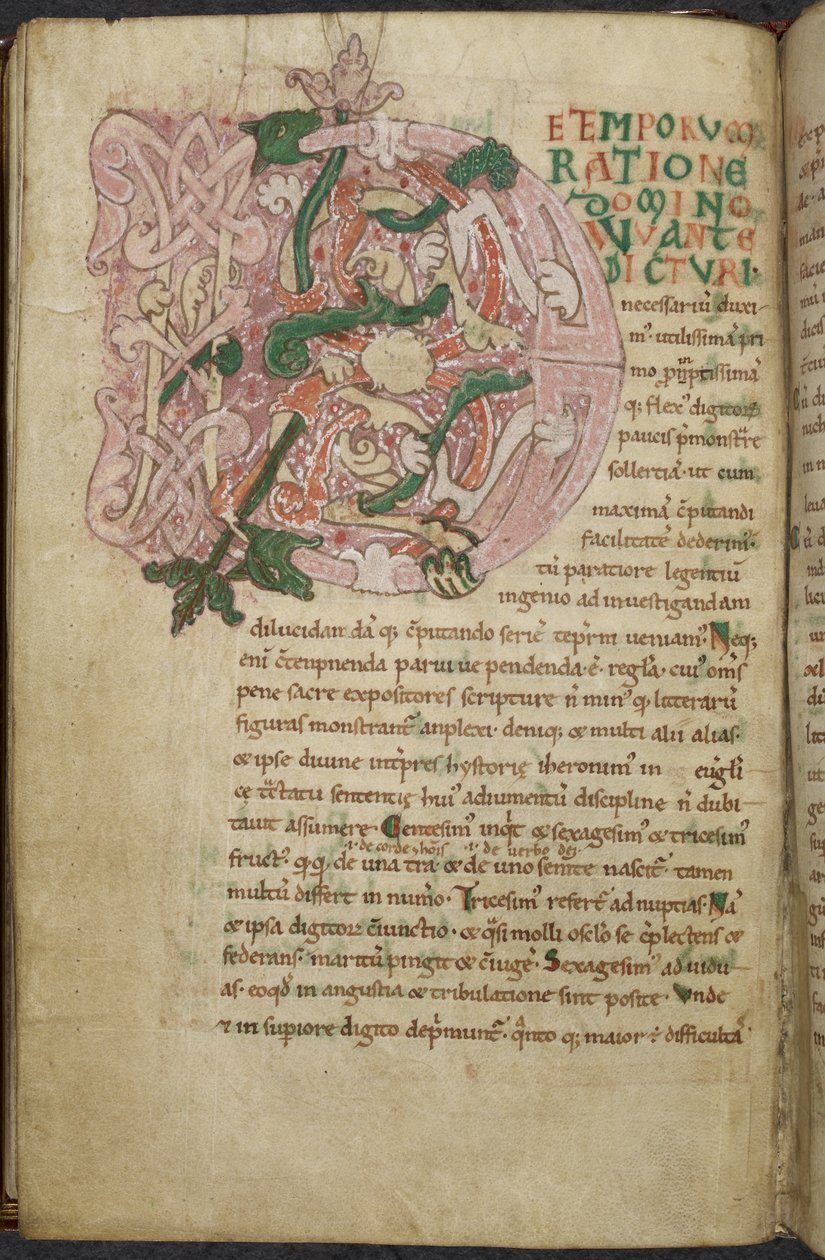 DE TEMPORUM
RATIONE
DOMINO
IUVANTE
DICTURI·
necessariū duxi-
m᷒ utilissimā pri
mo prōptissimā
q; flex᷒ digitorꝝ
paucis p̄monstrare
sollertiā· ut cum
maximā c̄putandi
facilitatē dederim᷒·
tū paratiore legentiū
ingenio ad investigandam
dilucidandāq; c̄putando seriē tēporum ueniam᷒· Neq;
eni c̄tenpnenda paruiue pendenda· ē· regl̄a· cui᷒ om̄s
pene sacre expositores scripture n̄ min᷒ q̄ litterarū
figuras monstrant᷒ anplexi· deniq; & multi alii alias·
& ipse divine int̄pres hystorię iheronim᷒ in eūgl̄i
cę tractatu sententię hui᷒ adiumentū discipline n̄ dubi-
tauit assumere· Centesim᷒ inqt & sexagesim᷒ & tricesim᷒
·i· de corde hōis ·i· de verbo dei·
fruct᷒· q̄q̄ de una t̄ra· & de uno semte nascit᷒· tamen
multū differt in num̄o· Tricesim᷒ refert᷒ ad nuptias· Nā
& ipsa digitorꝝ c̄iunctio· & qͣsi molli oscl̄o se c̄plectens &
federans· maritū pingit & c̄iugē· Sexagesim᷒ ad uidu-
as· eo qđ in angustia & tribulatione sint posite· Unde
⁊ in sup̄iore digito dep̄munt᷒· qͣnto q; maior ÷ difficultā